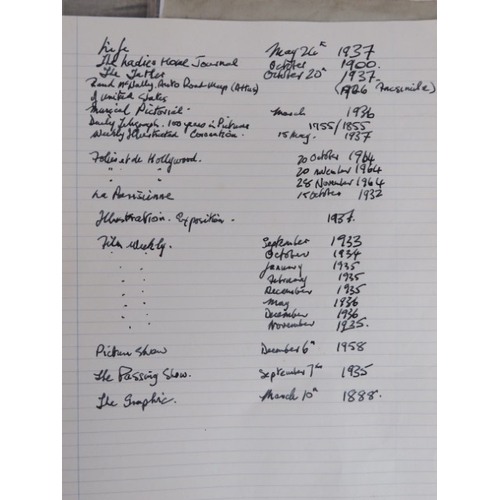 Life May 24th 1937
The Ladies Home Journal October 1900.
The Tatler October 20th 1937.
Rand McNally Auto Road Map (Atlas) (1926 Facsimile)
of United States
Musical Pictorial. March 1936
Daily Telegraph. 100 years in Pictures 1755/1855
Weekly Illustrated Coronation. 15 May. 1937
Folies et de Hollywood. 20 October 1964
" " 20 November 1964
" " 28 November 1964
La Parisienne 15 October 1932
Illustration. Exposition. 1937.
Film Weekly. September 1933
" " October 1934
" " January 1935
" " February 1935
" " December 1935
" " May 1936
" " December 1936
" " November 1935.
Picture Show December 6th 1958
The Passing Show. September 7th 1935
The Graphic. March 10th 1888.